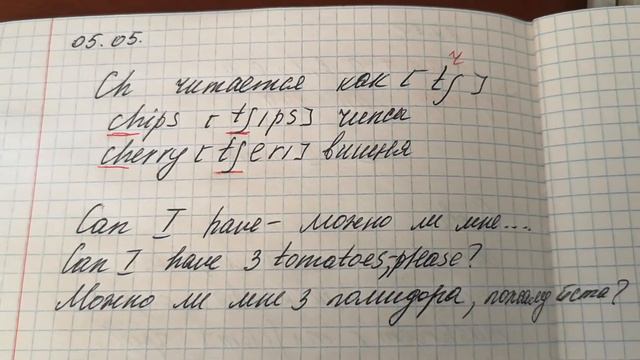 05.05.
ч
Ch читается как [tʃ]
chips [tʃips] чипсы
cherry [tʃeri] вишня
Can I have – можно ли мне....
Can I have 3 tomatoes, please?
Можно ли мне 3 помидора, пожалуйста?